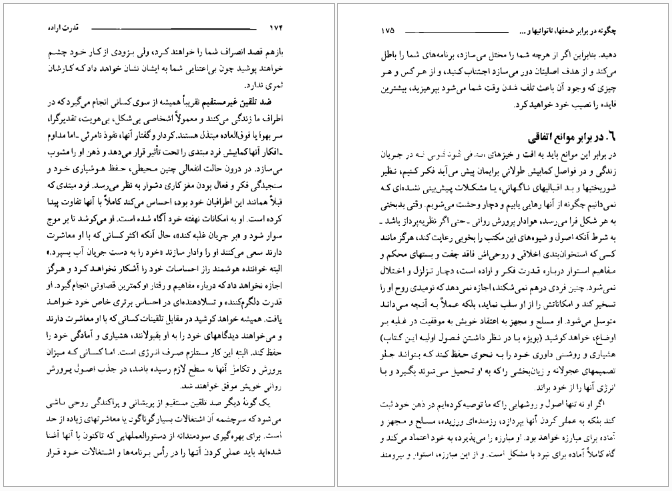 ۱۷۴ قدرت اراده
بازهم قصد انصراف شما را خواهند کرد، ولی بزودی از کار خود چشم
خواهند پوشید چون بی‌اعتنایی شما به ایشان نشان خواهد داد که کارشان
ثمری ندارد.
ضد تلقین غیرمستقیم تقریباً همیشه از سوی کسانی انجام میگیرد که در
اطراف ما زندگی می‌کنند و معمولاً اشخاصی بی‌شکل، بی‌هویت، تقدیرگرا،
سر بهوا یا فوق‌العاده مبتذل هستند. کردار و گفتار آنها، نفوذ نامرئی ـ اما مداوم
ـ افکار آنها کمابیش فرد مبتدی را تحت تأثیر قرار می‌دهد و ذهن او را مشوب
می‌سازد. در درون حالت انفعالی چنین محیطی، حفظ هوشیاری خود و
سنجیدگی فکر و فعال بودن مغز کاری دشوار به نظر می‌رسد. فرد مبتدی که
قبلاً همانند این اطرافیان خود بود، احساس می‌کند کاملاً با آنها تفاوت پیدا
کرده است. او به امکانات نهفته خود آگاه شده است. او می‌کوشد تا بر موج
سوار شود و «بر جریان غلبه کند»، حال آنکه اکثر کسانی که با او معاشرت
دارند سعی می‌کنند او را وادار سازند «خود را به دست جریان آب بسپرد.»
البته خواننده هوشمند راز احساسات خود را آشکار نخواهد کرد و هرگز
اجازه نخواهد داد که درباره مفاهیم و رفتار او کمترین قضاوتی انجام گیرد. او
قدرت دلگرم‌کننده و تسلادهنده‌ای در احساس برتری خاص خود خواهد
یافت. همیشه خواهد کوشید در مقابل تلقینات کسانی که با او معاشرت دارند
و می‌خواهند دیدگاههای خود را به او بقبولانند، هشیاری و آمادگی خود را
حفظ کند. البته این کار مستلزم صرف انرژی است. اما کسانی که میزان
پرورش و تکامل آنها به سطح لازم رسیده باشد، در جذب اصول پرورش
روانی خویش موفق خواهند شد.
یک گونهٔ دیگر ضد تلقین مستقیم از پریشانی و پراکندگی روحی ناشی
می‌شود که سرچشمه آن اشتغالات بسیار گوناگون یا معاشرتهای زیاده از حد
است. برای بهره‌گیری سودمندانه از دستورالعملهایی که تاکنون با آنها آشنا
شده‌اید باید عملی کردن آنها را در رأس برنامه‌ها و اشتغالات خود قرار
چگونه در برابر ضعفها، ناتوانیها و ... ۱۷۵
دهید. بنابراین اگر از هرچه شما را مختل می‌سازد، برنامه‌های شما را باطل
می‌کند و از هدف اصلیتان دور می‌سازد اجتناب کنید، و از هر کس و هر
چیزی که وجود آن باعث تلف شدن وقت شما می‌شود بپرهیزید، بیشترین
فایده را نصیب خود خواهید کرد.
۶. در برابر موانع اتفاقی
در برابر این موانع باید به افت و خیزهای در جریان
زندگی و در فواصل کمابیش طولانی برایمان پیش می‌آید فکر کنیم، نظیر
شوربختیها و بد اقبالیهای ناگهانی، یا مشکلات پیش‌بینی نشده‌ای که
نمی‌دانیم چگونه از آنها رهایی یابیم و دچار وحشت می‌شویم. وقتی بدبختی
به هر شکل فرا می‌رسد، هوادار پرورش روانی ـ حتی اگر نظریه‌پرداز باشد ـ
به شرط آنکه اصول و شیوه‌های این مکتب را بخوبی رعایت کند، هرگز مانند
کسی که استخوان‌بندی اخلاقی و روحی‌اش فاقد چفت و بستهای محکم و
مفاهیم استوار درباره قدرت فکر و اراده است، دچار تزلزل و اختلال
نمی‌شود. چنین فردی درهم نمی‌شکند، اجازه نمی‌دهد که نومیدی روح او را
تسخیر کند و امکاناتش را از او سلب نماید، بلکه عملاً به آنچه می‌داند
متوسل می‌شود. او مسلح و مجهز به اعتقاد خویش به موفقیت در غلبه بر
اوضاع، خواهد کوشید (بویژه با در نظر داشتن فصول اولیه این کتاب)
هشیاری و روشنی داوری خود را به نحوی حفظ کند که بتواند جلو
تصمیمهای عجولانه و زیان‌بخشی را که به او تحمیل می‌شوند بگیرد و با
انرژی آنها را از خود براند.
اگر او نه تنها اصول و روشهایی را که ما توصیه کرده‌ایم در ذهن خود ثبت
کند بلکه به عملی کردن آنها بپردازد، رزمنده‌ای ورزیده، مسلح و مجهز و
آماده برای مبارزه خواهد بود. او مبارزه را می‌پذیرد، به خود اعتماد می‌کند و
گاه کاملاً آماده برای نبرد با مشکل است. و از این مبارزه، استوار و نیرومند